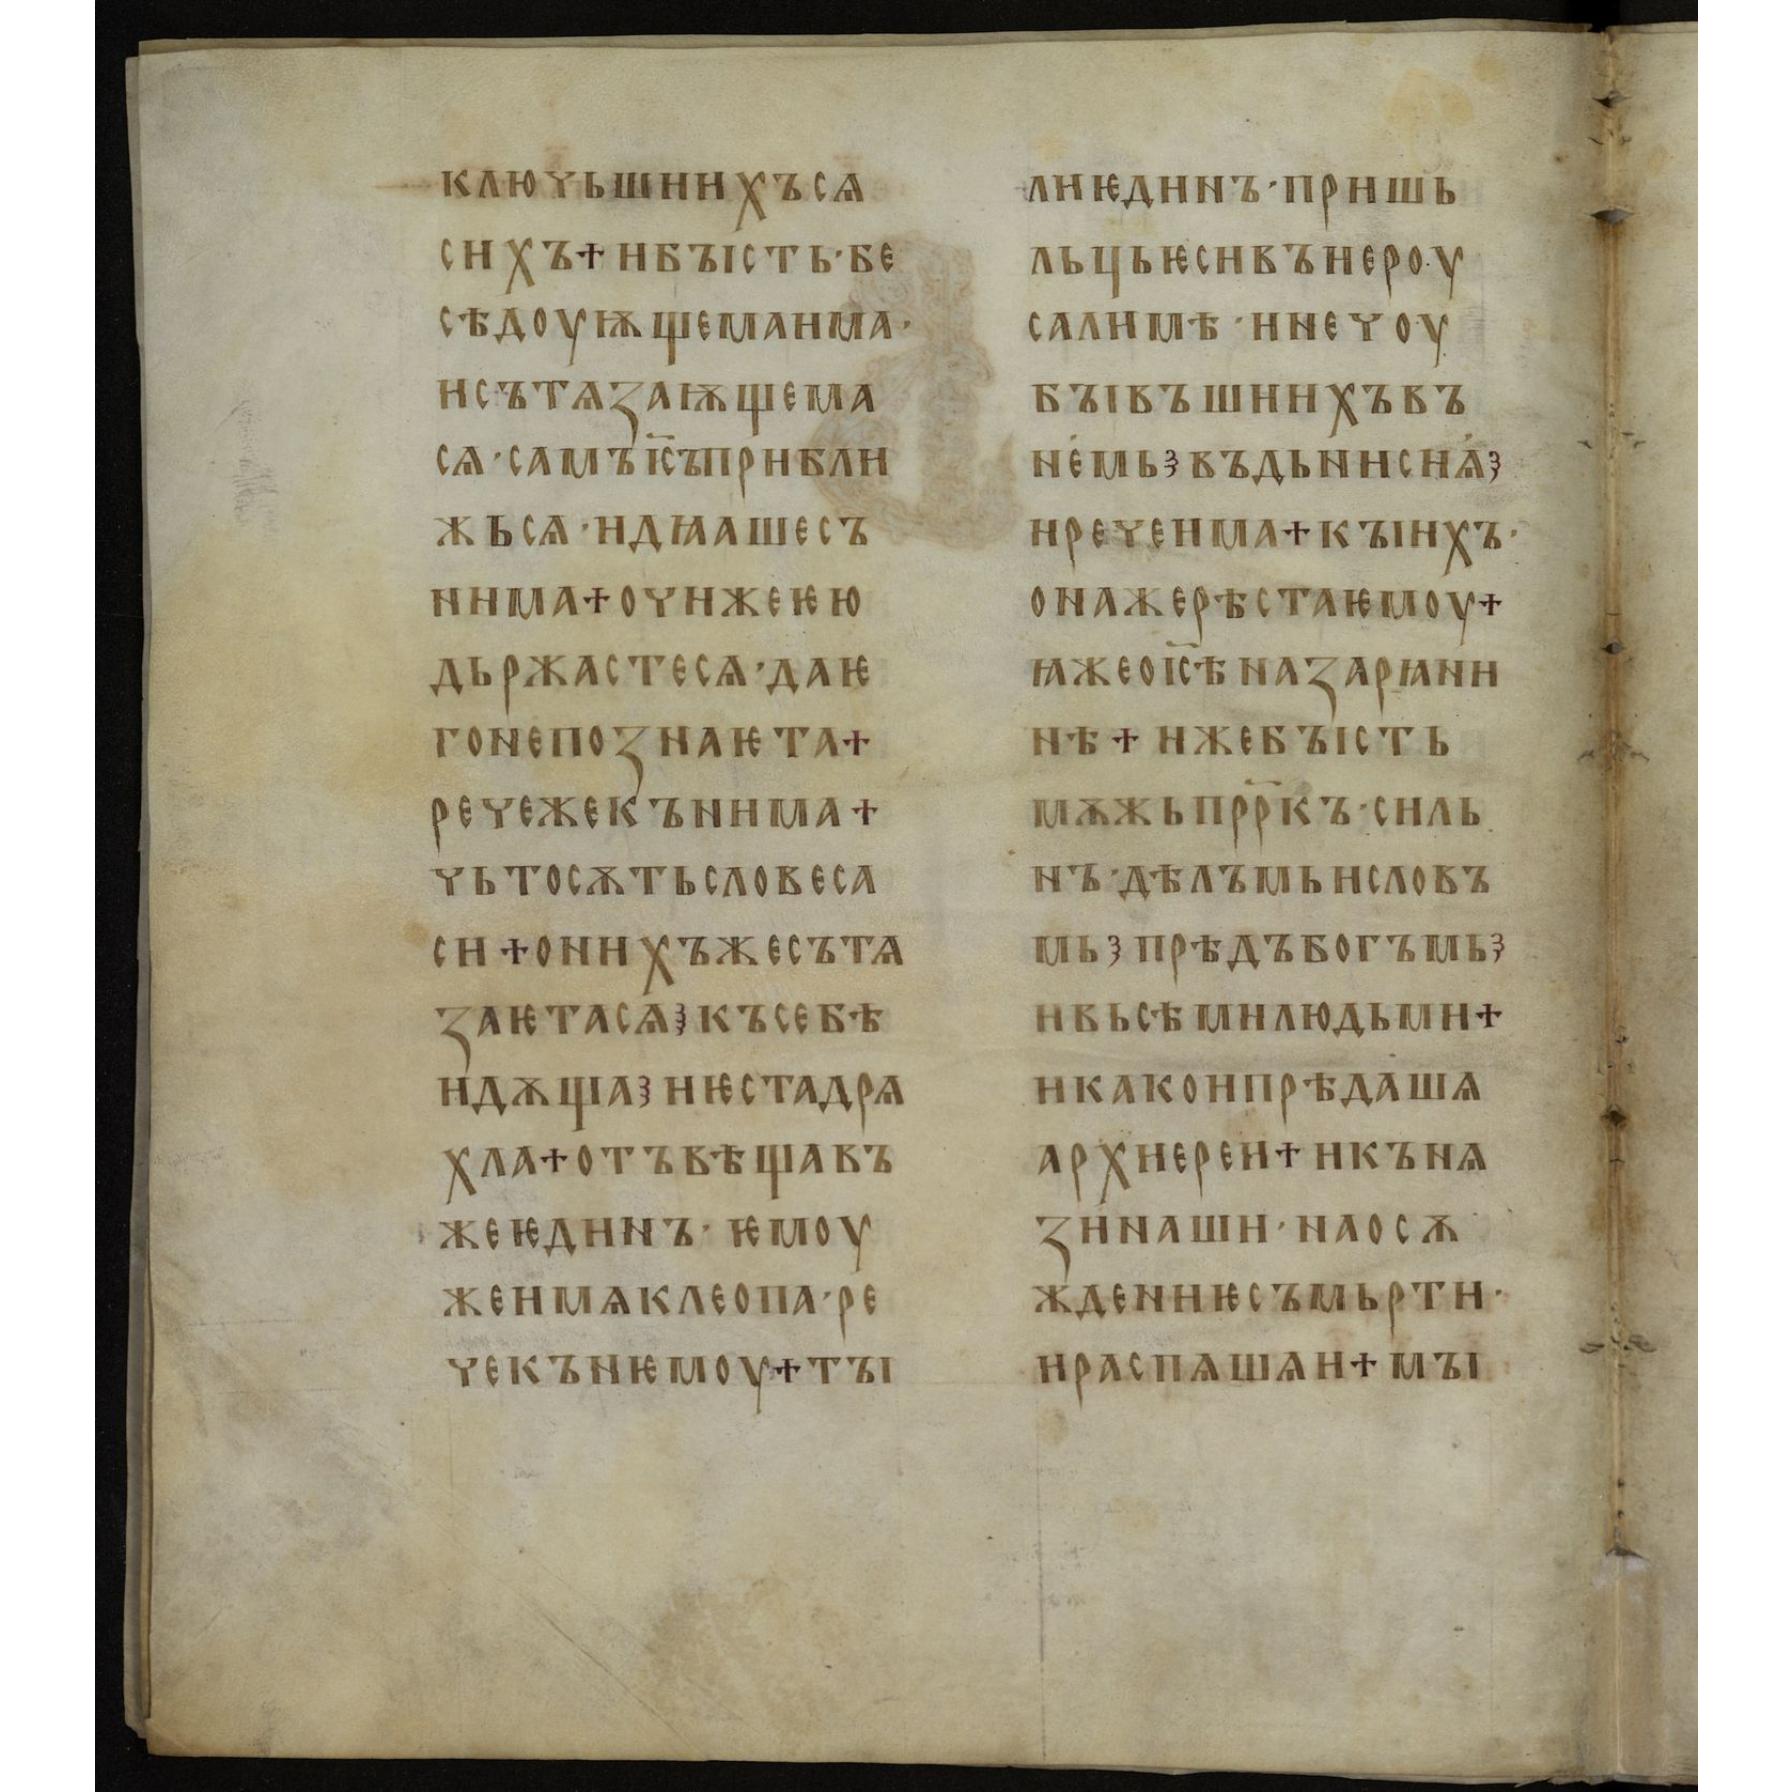 клюуьшиихъсѧ
сихъ+ибꙑсть·бе
сѣдоуѭщеманма·
исътѧꙁаѭщема
сѧ·самъі҃съприбли
жьсѧ·идꙗашесъ
нима+оуижеѥю
дьржастесѧ·даѥ
гонепоꙁнаѥта+
реуежекънима+
уьтосѫтьсловеса
си+онихъжесътѧ
ꙁаѥтасѧꙁкъсебѣ
идѫщаꙁиѥстадрѧ
хла+отъвѣщавъ
жеѥдинъ·ѥмоу
жеимѧклеопа·ре
уекънѥмоу+тꙑ
лиѥдинъ·пришь
льцьѥсивъиероу
салимѣ·инеуоу
бꙑвъшиихъвъ
немьꙁвъдьнисиѧꙁ
иреуеима+кꙑихъ·
онажерѣстаѥмоу+
ꙗжеоі҃сѣнаꙁарꙗни
нѣ+ижебꙑсть
мѫжьпрр҃къ·силь
нъ·дѣлъмьисловъ
мьꙁпрѣдъбогъмьꙁ
ивьсѣмилюдьми+
икакоипрѣдашѧ
архиереи+икънѧ
ꙁинаши·наосѫ
ждениѥсъмьрти·
ираспѧшѧи+мꙑ